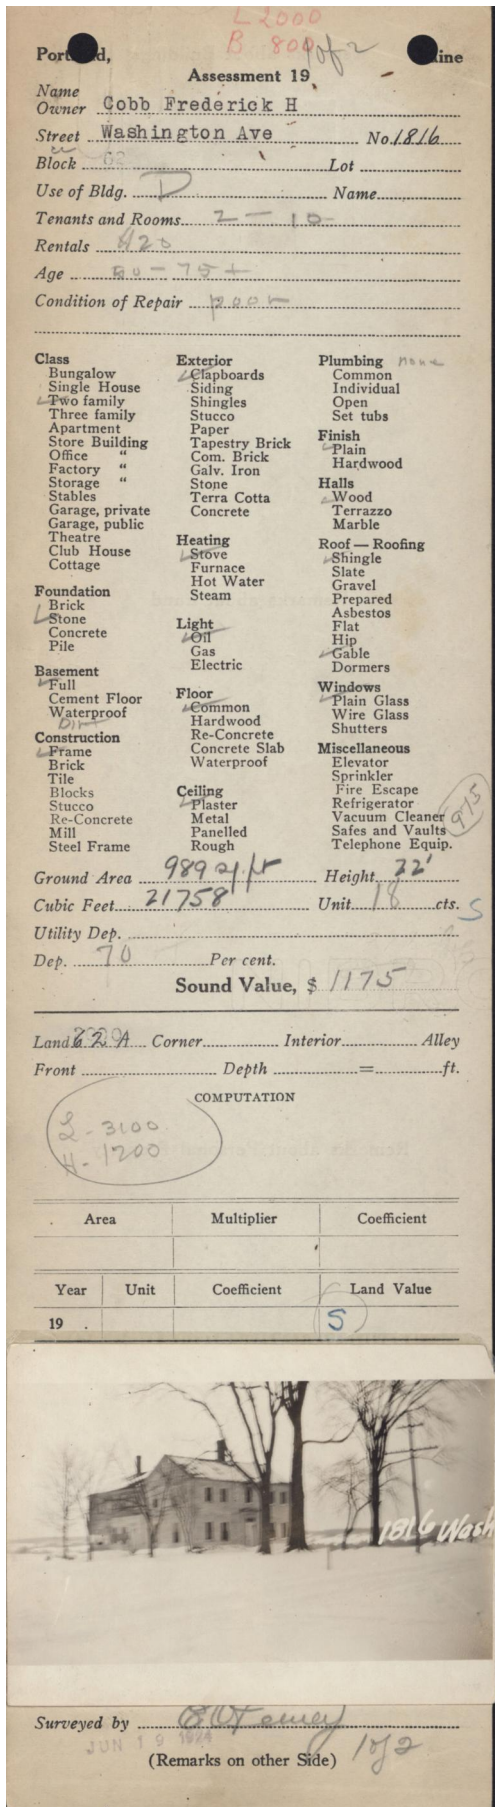 L 2000
B 800 1 of 2
Portland, Maine
Assessment 19
Name
Owner Cobb Frederick H
Street Washington Ave No. 1816
Block 62 Lot
Use of Bldg. D Name
Tenants and Rooms 2 - 10
Rentals 420
Age 60 - 75 +
Condition of Repair poor
Class
Bungalow
Single House
Two family
Three family
Apartment
Store Building
Office "
Factory "
Storage "
Stables
Garage, private
Garage, public
Theatre
Club House
Cottage
Foundation
Brick
Stone
Concrete
Pile
Basement
Full
Cement Floor
Waterproof
Dirt
Construction
Frame
Brick
Tile
Blocks
Stucco
Re-Concrete
Mill
Steel Frame
Exterior
Clapboards
Siding
Shingles
Stucco
Paper
Tapestry Brick
Com. Brick
Galv. Iron
Stone
Terra Cotta
Concrete
Heating
Stove
Furnace
Hot Water
Steam
Light
Oil
Gas
Electric
Floor
Common
Hardwood
Re-Concrete
Concrete Slab
Waterproof
Ceiling
Plaster
Metal
Panelled
Rough
Plumbing none
Common
Individual
Open
Set tubs
Finish
Plain
Hardwood
Halls
Wood
Terrazzo
Marble
Roof — Roofing
Shingle
Slate
Gravel
Prepared
Asbestos
Flat
Hip
Gable
Dormers
Windows
Plain Glass
Wire Glass
Shutters
Miscellaneous
Elevator
Sprinkler
Fire Escape
Refrigerator
Vacuum Cleaner
Safes and Vaults
Telephone Equip.
975
Ground Area 989 sq. ft Height 22'
Cubic Feet 21758 Unit 18 cts. S
Utility Dep.
Dep. 70 Per cent.
Sound Value, $ 1175
Land 62 A Corner Interior Alley
Front Depth = ft.
COMPUTATION
L - 3100
H - 1200
Area Multiplier Coefficient
Year Unit Coefficient Land Value
19 . S
1816 Wash
Surveyed by
JUN 19 1924
(Remarks on other Side) 1 of 2